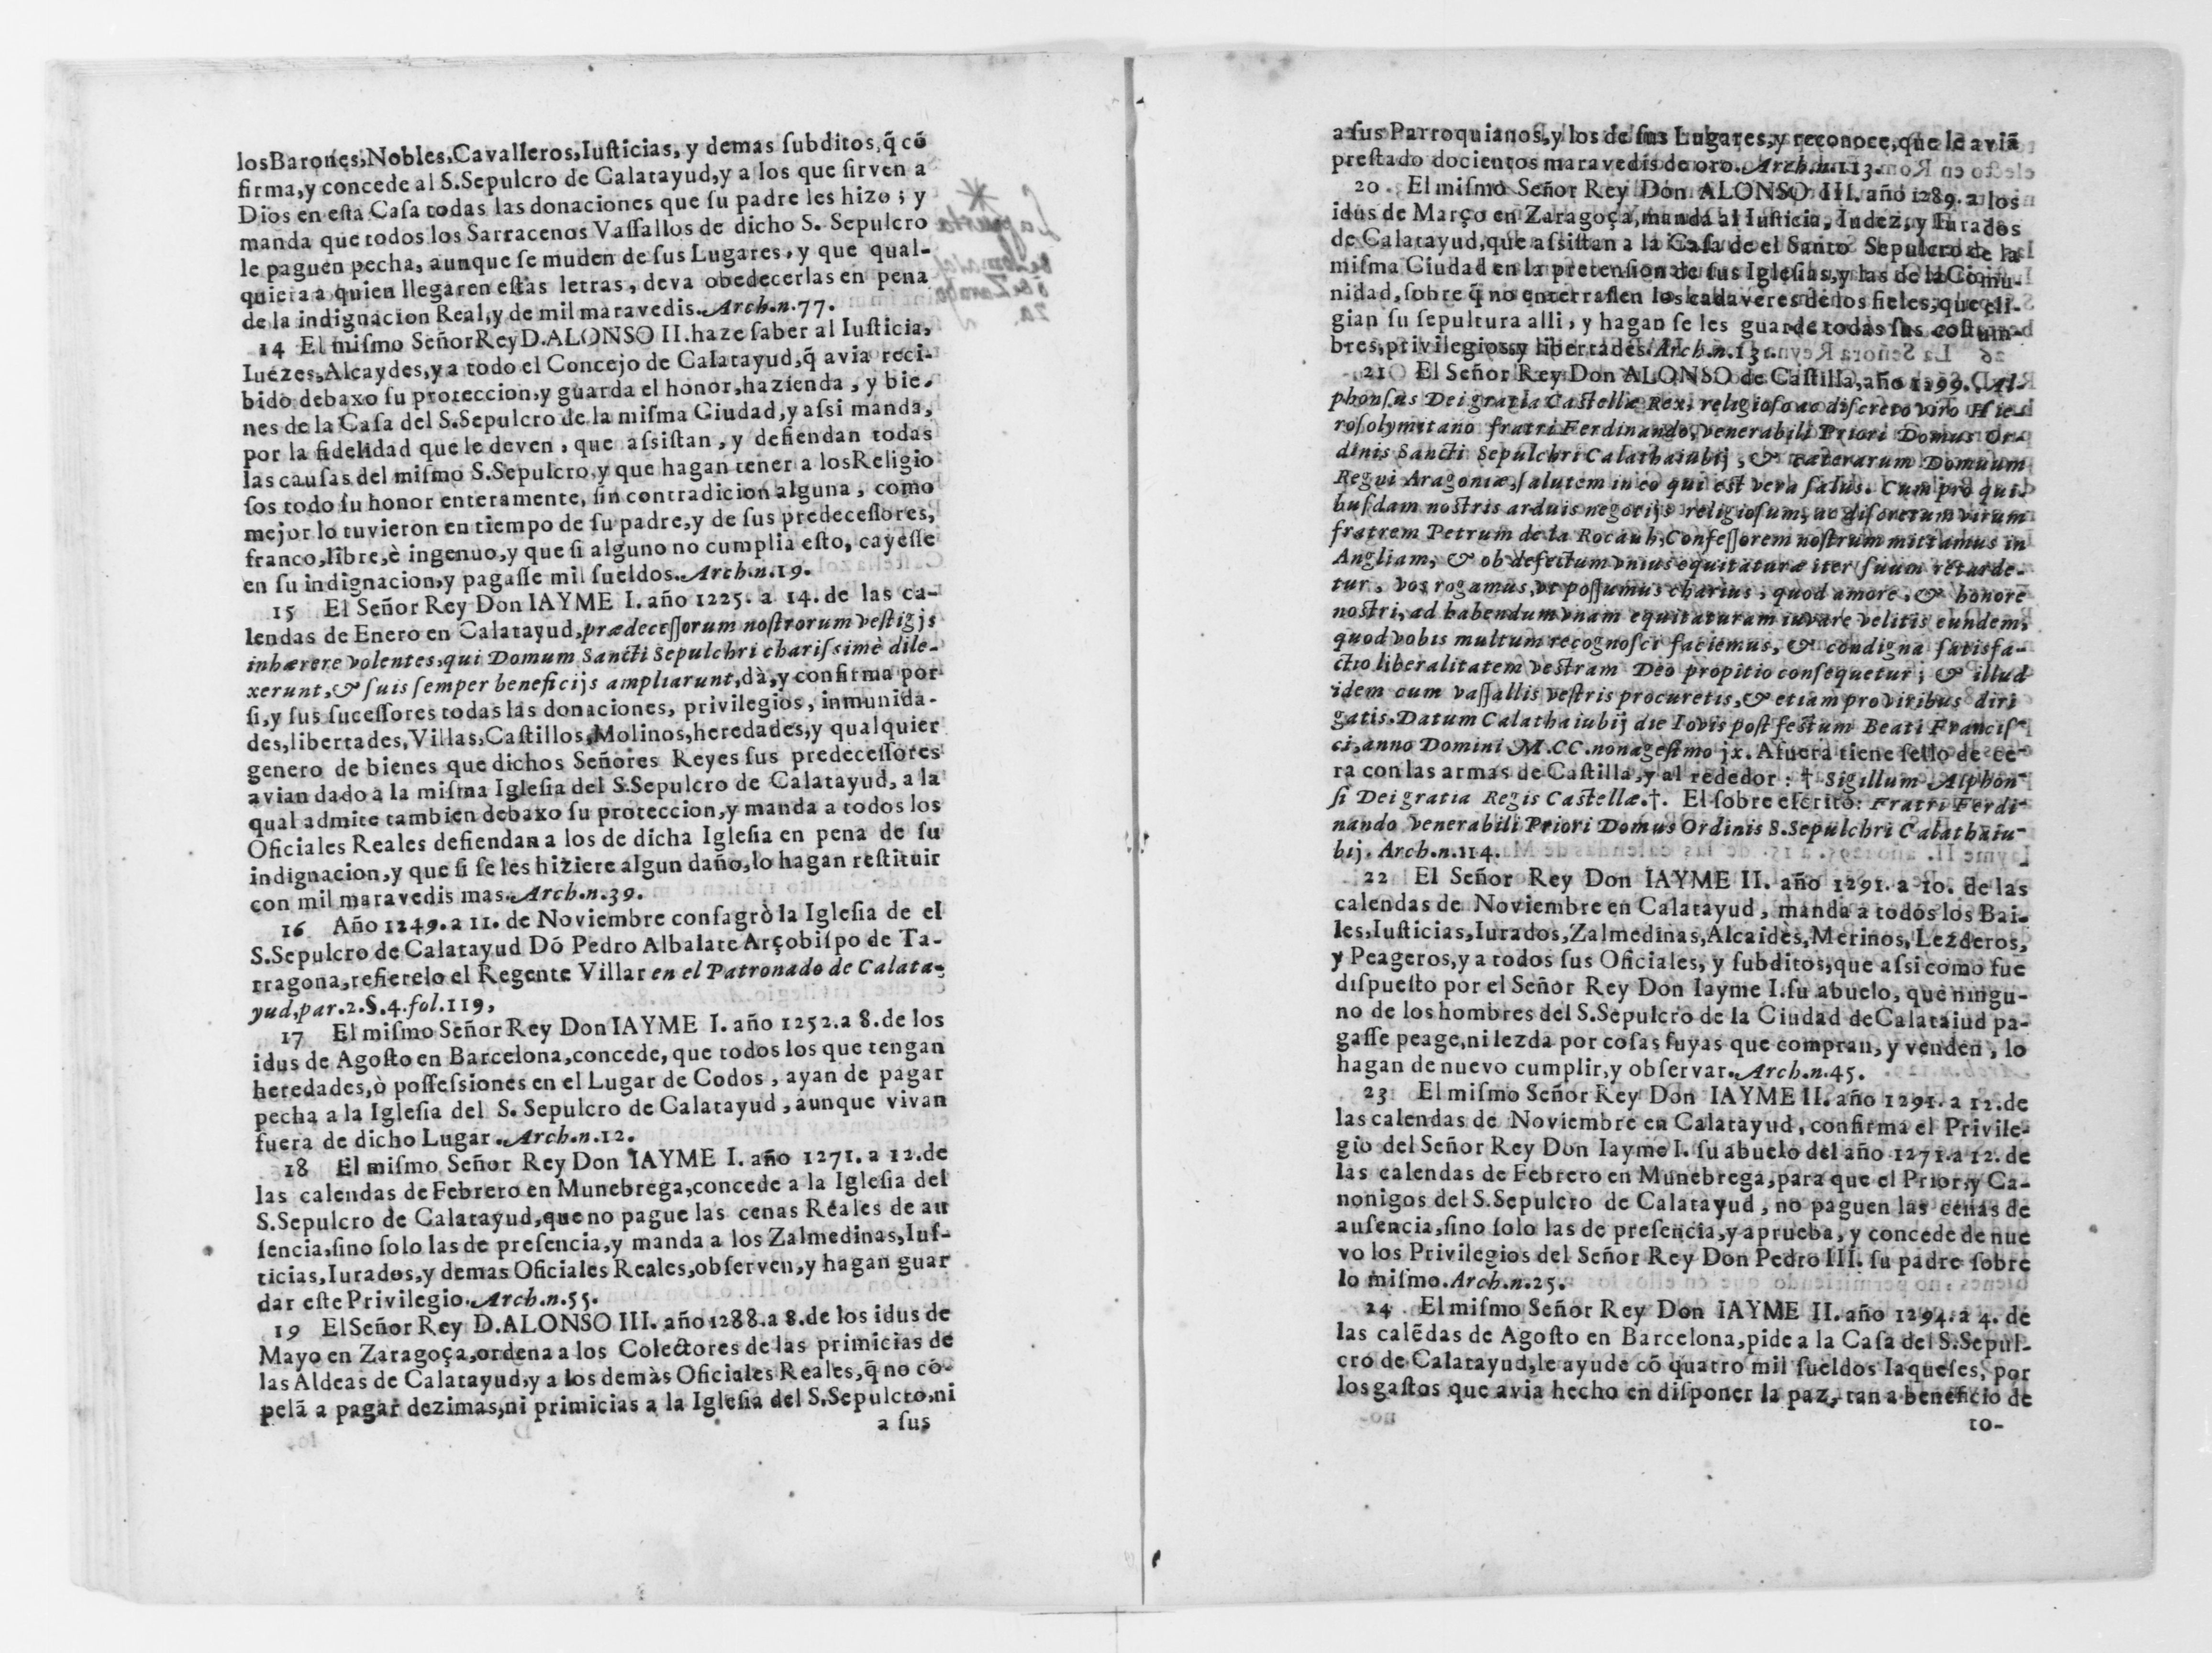 los Barones, Nobles, Cavalleros, Iusticias, y demas subditos, q̃ cõ
firma, y concede al S. Sepulcro de Calatayud, y a los que sirven a
Dios en esta Casa todas las donaciones que su padre les hizo; y
manda que todos los Sarracenos Vassallos de dicho S. Sepulcro
le paguen pecha, aunque se muden de sus Lugares, y que qual-
quiera a quien llegaren estas letras, deva obedecerlas en pena
de la indignacion Real, y de mil maravedis. Arch. n. 77.
14 El mismo Señor Rey D. ALONSO II. haze saber al Iusticia,
Iuezes, Alcaydes, y a todo el Concejo de Calatayud, q̃ avia reci-
bido debaxo su proteccion, y guarda el honor, hazienda, y bie-
nes de la Casa del S. Sepulcro de la misma Ciudad, y assi manda,
por la fidelidad que le deven, que assistan, y defiendan todas
las causas del mismo S. Sepulcro, y que hagan tener a los Religio
sos todo su honor enteramente, sin contradicion alguna, como
mejor lo tuvieron en tiempo de su padre, y de sus predecessores,
franco, libre, è ingenuo, y que si alguno no cumplia esto, cayesse
en su indignacion, y pagasse mil sueldos. Arch. n. 19.
15 El Señor Rey Don IAYME I. año 1225. a 14. de las ca-
lendas de Enero en Calatayud, prædecessorum nostrorum vestigijs
inhærere volentes, qui Domum Sancti Sepulchri charissimè dile-
xerunt, & suis semper beneficijs ampliarunt, dà, y confirma por
si, y sus sucessores todas las donaciones, privilegios, inmunida-
des, libertades, Villas, Castillos, Molinos, heredades, y qualquier
genero de bienes que dichos Señores Reyes sus predecessores
avian dado a la misma Iglesia del S. Sepulcro de Calatayud, a la
qual admite tambien debaxo su proteccion, y manda a todos los
Oficiales Reales defiendan a los de dicha Iglesia en pena de su
indignacion, y que si se les hiziere algun daño, lo hagan restituir
con mil maravedis mas. Arch. n. 39.
16 Año 1249. a 11. de Noviembre consagrò la Iglesia de el
S. Sepulcro de Calatayud Dõ Pedro Albalate Arçobispo de Ta-
rragona, refierelo el Regente Villar en el Patronado de Calata-
yud, par. 2. §. 4. fol. 119,
17 El mismo Señor Rey Don IAYME I. año 1252. a 8. de los
idus de Agosto en Barcelona, concede, que todos los que tengan
heredades, ò possessiones en el Lugar de Codos, ayan de pagar
pecha a la Iglesia del S. Sepulcro de Calatayud, aunque vivan
fuera de dicho Lugar. Arch. n. 12.
18 El mismo Señor Rey Don IAYME I. año 1271. a 12. de
las calendas de Febrero en Munebrega, concede a la Iglesia del
S. Sepulcro de Calatayud, que no pague las cenas Reales de au
sencia, sino solo las de presencia, y manda a los Zalmedinas, Ius-
ticias, Iurados, y demas Oficiales Reales, observen, y hagan guar
dar este Privilegio. Arch. n. 55.
19 El Señor Rey D. ALONSO III. año 1288. a 8. de los idus de
Mayo en Zaragoça, ordena a los Colectores de las primicias de
las Aldeas de Calatayud, y a los demàs Oficiales Reales, q̃ no cõ-
pelã a pagar dezimas, ni primicias a la Iglesia del S. Sepulcro, ni
a sus
a sus Parroquianos, y los de sus Lugares, y reconoce, que le aviã
prestado docientos maravedis de oro. Arch. n. 113.
20 El mismo Señor Rey Don ALONSO III. año 1289. a los
idus de Março en Zaragoça, manda al Iusticia, Iudez, y Iurados
de Calatayud, que assistan a la Casa de el Santo Sepulcro de la
misma Ciudad en la pretension de sus Iglesias, y las de la Comu-
nidad, sobre q̃ no enterrassen los cadaveres de los fieles, que eli-
gian su sepultura alli, y hagan se les guarde todas sus costum-
bres, privilegios, y libertades. Arch. n. 13.
21 El Señor Rey Don ALONSO de Castilla, año 1299. Al-
phonsus Dei gratia Castellæ Rex, religioso ac discreto viro Hie-
rosolymitano fratri Ferdinando, venerabili Priori Domus Or-
dinis Sancti Sepulchri Calathaiubij, & cæterarum Domuum
Regni Aragoniæ, salutem in eo qui est vera salus. Cum pro qui-
busdam nostris arduis negotijs religiosum, ac discretum virum
fratrem Petrum de la Rocauh, Confessorem nostrum mittamus in
Angliam, & ob defectum vnius equitaturæ iter suum retarde-
tur, vos rogamus, vt possumus charius, quod amore, & honore
nostri, ad habendum vnam equitaturam iuvare velitis eundem,
quod vobis multum recognosci faciemus, & condigna satisfa-
ctio liberalitatem vestram Deo propitio consequetur; & illud
idem cum vassallis vestris procuretis, & etiam pro viribus diri
gatis. Datum Calathaiubij die Iovis post festum Beati Francis-
ci, anno Domini M.CC. nonagesimo jx. Afuera tiene sello de ce-
ra con las armas de Castilla, y al rededor: † Sigillum Alphon-
si Dei gratia Regis Castellæ. †. El sobre escrito: Fratri Ferdi-
nando venerabili Priori Domus Ordinis S. Sepulchri Calathaiu-
bij. Arch. n. 114.
22 El Señor Rey Don IAYME II. año 1291. a 10. de las
calendas de Noviembre en Calatayud, manda a todos los Bai-
les, Iusticias, Iurados, Zalmedinas, Alcaides, Merinos, Lezderos,
y Peageros, y a todos sus Oficiales, y subditos, que assi como fue
dispuesto por el Señor Rey Don Iayme I. su abuelo, que ningu-
no de los hombres del S. Sepulcro de la Ciudad de Calataiud pa-
gasse peage, ni lezda por cosas suyas que compran, y venden, lo
hagan de nuevo cumplir, y observar. Arch. n. 45.
23 El mismo Señor Rey Don IAYME II. año 1291. a 12. de
las calendas de Noviembre en Calatayud, confirma el Privile-
gio del Señor Rey Don Iayme I. su abuelo del año 1271. a 12. de
las calendas de Febrero en Munebrega, para que el Prior, y Ca-
nonigos del S. Sepulcro de Calatayud, no paguen las cenas de
ausencia, sino solo las de presencia, y aprueba, y concede de nue
vo los Privilegios del Señor Rey Don Pedro III. su padre sobre
lo mismo. Arch. n. 25.
24 El mismo Señor Rey Don IAYME II. año 1294. a 4. de
las calẽdas de Agosto en Barcelona, pide a la Casa del S. Sepul-
cro de Calatayud, le ayude cõ quatro mil sueldos Iaqueses, por
los gastos que avia hecho en disponer la paz, tan a beneficio de
to-